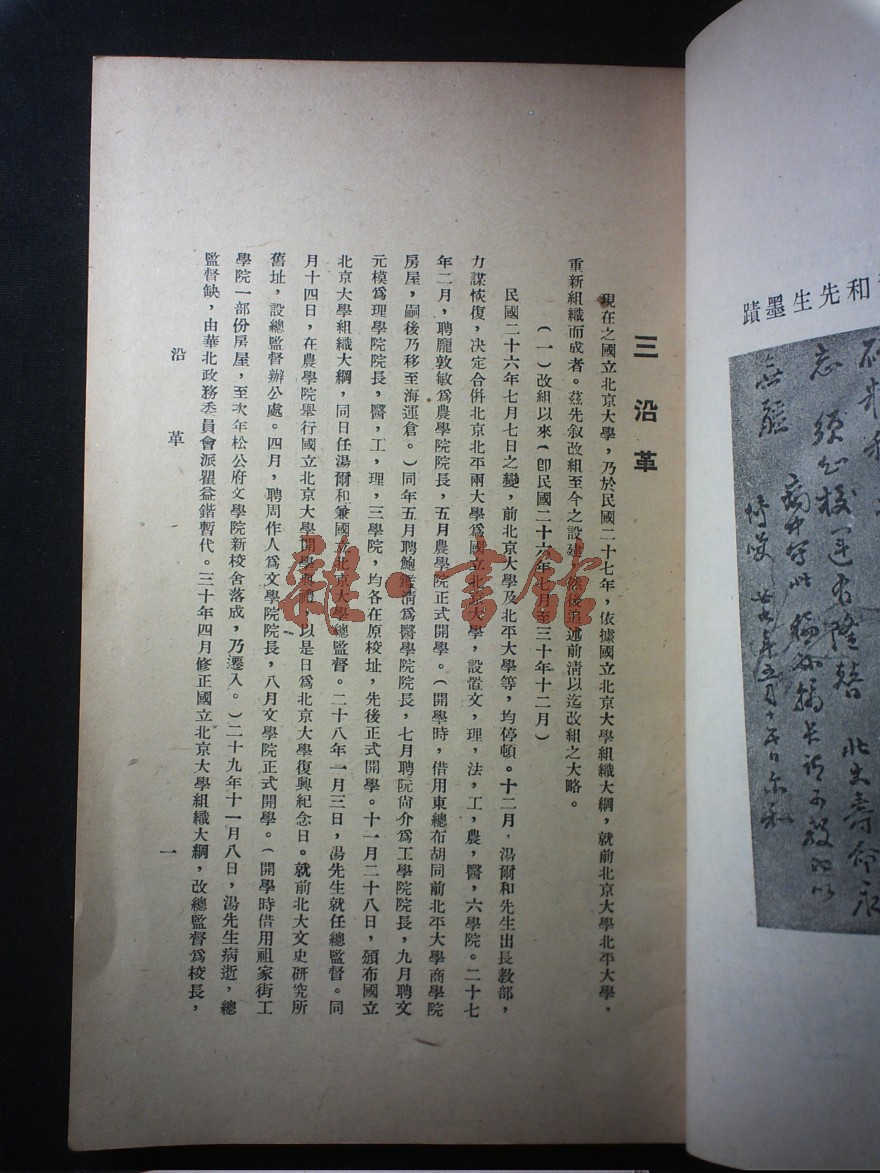 和先生墨蹟
三 沿 革
現在之國立北京大學，乃於民國二十七年，依據國立北京大學組織大綱，就前北京大學北平大學，
重新組織而成者。茲先敍改組至今之設建，然後追述前清以迄改組之大略。
（一）改組以來（卽民國二十六年七月至三十年十二月）
民國二十六年七月七日之變，前北京大學及北平大學等，均停頓。十二月，湯爾和先生出長教部，
力謀恢復，决定合併北京北平兩大學爲國立北京大學，設置文，理，法，工，農，醫，六學院。二十七
年二月，聘龐敦敏爲農學院院長，五月農學院正式開學。（開學時，借用東總布胡同前北平大學商學院
房屋，嗣後乃移至海運倉。）同年五月聘鮑鑑淸爲醫學院院長，七月聘阮尙介爲工學院院長，九月聘文
元模爲理學院院長，醫，工，理，三學院，均各在原校址，先後正式開學。十一月二十八日，頒布國立
北京大學組織大綱，同日任湯爾和兼國立北京大學總監督。二十八年一月三日，湯先生就任總監督。同
月十四日，在農學院舉行國立北京大學開學典禮，以是日爲北京大學復興紀念日。就前北大文史研究所
舊址，設總監督辦公處。四月，聘周作人爲文學院院長，八月文學院正式開學。（開學時借用祖家街工
學院一部份房屋，至次年松公府文學院新校舍落成，乃遷入。）二十九年十一月八日，湯先生病逝，總
監督缺，由華北政務委員會派瞿益鍇暫代。三十年四月修正國立北京大學組織大綱，改總監督爲校長，
沿 革
一
雜·書館